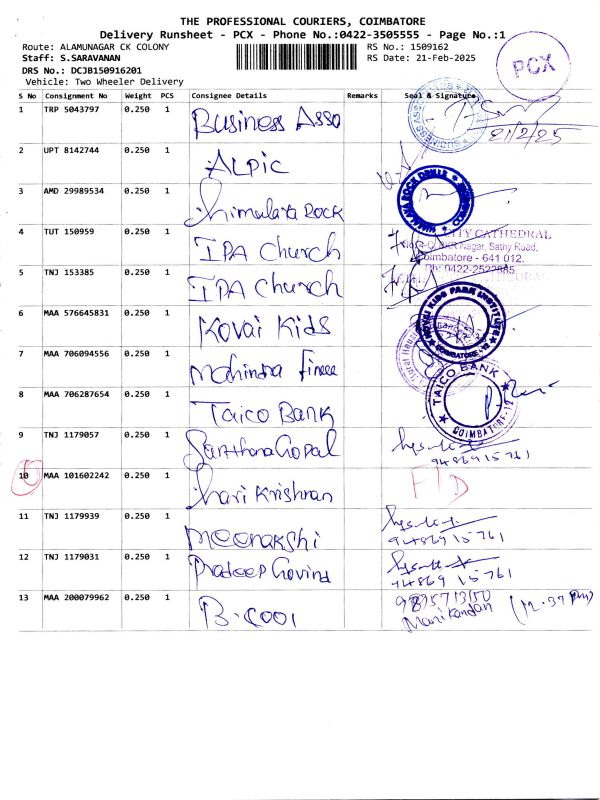 THE PROFESSIONAL COURIERS, COIMBATORE
Delivery Runsheet - PCX - Phone No.:0422-3505555 - Page No.:1
Route: ALAMUNAGAR CK COLONY RS No.: 1509162
Staff: S.SARAVANAN RS Date: 21-Feb-2025
DRS No.: DCJB150916201
Vehicle: Two Wheeler Delivery
PCX
S No Consignment No Weight PCS Consignee Details Remarks Seal & Signature
1 TRP 5043797 0.250 1 Business Asso
21/2/25
2 UPT 8142744 0.250 1 ALPIC
3 AMD 29989534 0.250 1 himalaya ROCK
4 TUT 150959 0.250 1 IPA Church CITY CATHEDRAL
Nagar, Sathy Road,
Coimbatore - 641 012.
Ph: 0422-2522885
5 TNJ 153385 0.250 1 IPA Church
6 MAA 576645831 0.250 1 Kovai Kids KOVAI KIDS PARK INSTITUTE
COIMBATORE-12
7 MAA 706094556 0.250 1 Mahindra Finece
8 MAA 706287654 0.250 1 TAICO BANK TAICO BANK
COIMBATORE-12
9 TNJ 1179057 0.250 1 Santhana Gopal
94869 15761
10 MAA 101602242 0.250 1 hari Krishnan
11 TNJ 1179939 0.250 1 Meenakshi
94869 15761
12 TNJ 1179031 0.250 1 Pradeep Govind
94869 15761
13 MAA 200079962 0.250 1 B-COOl
Manikandan (12.37 Pm)